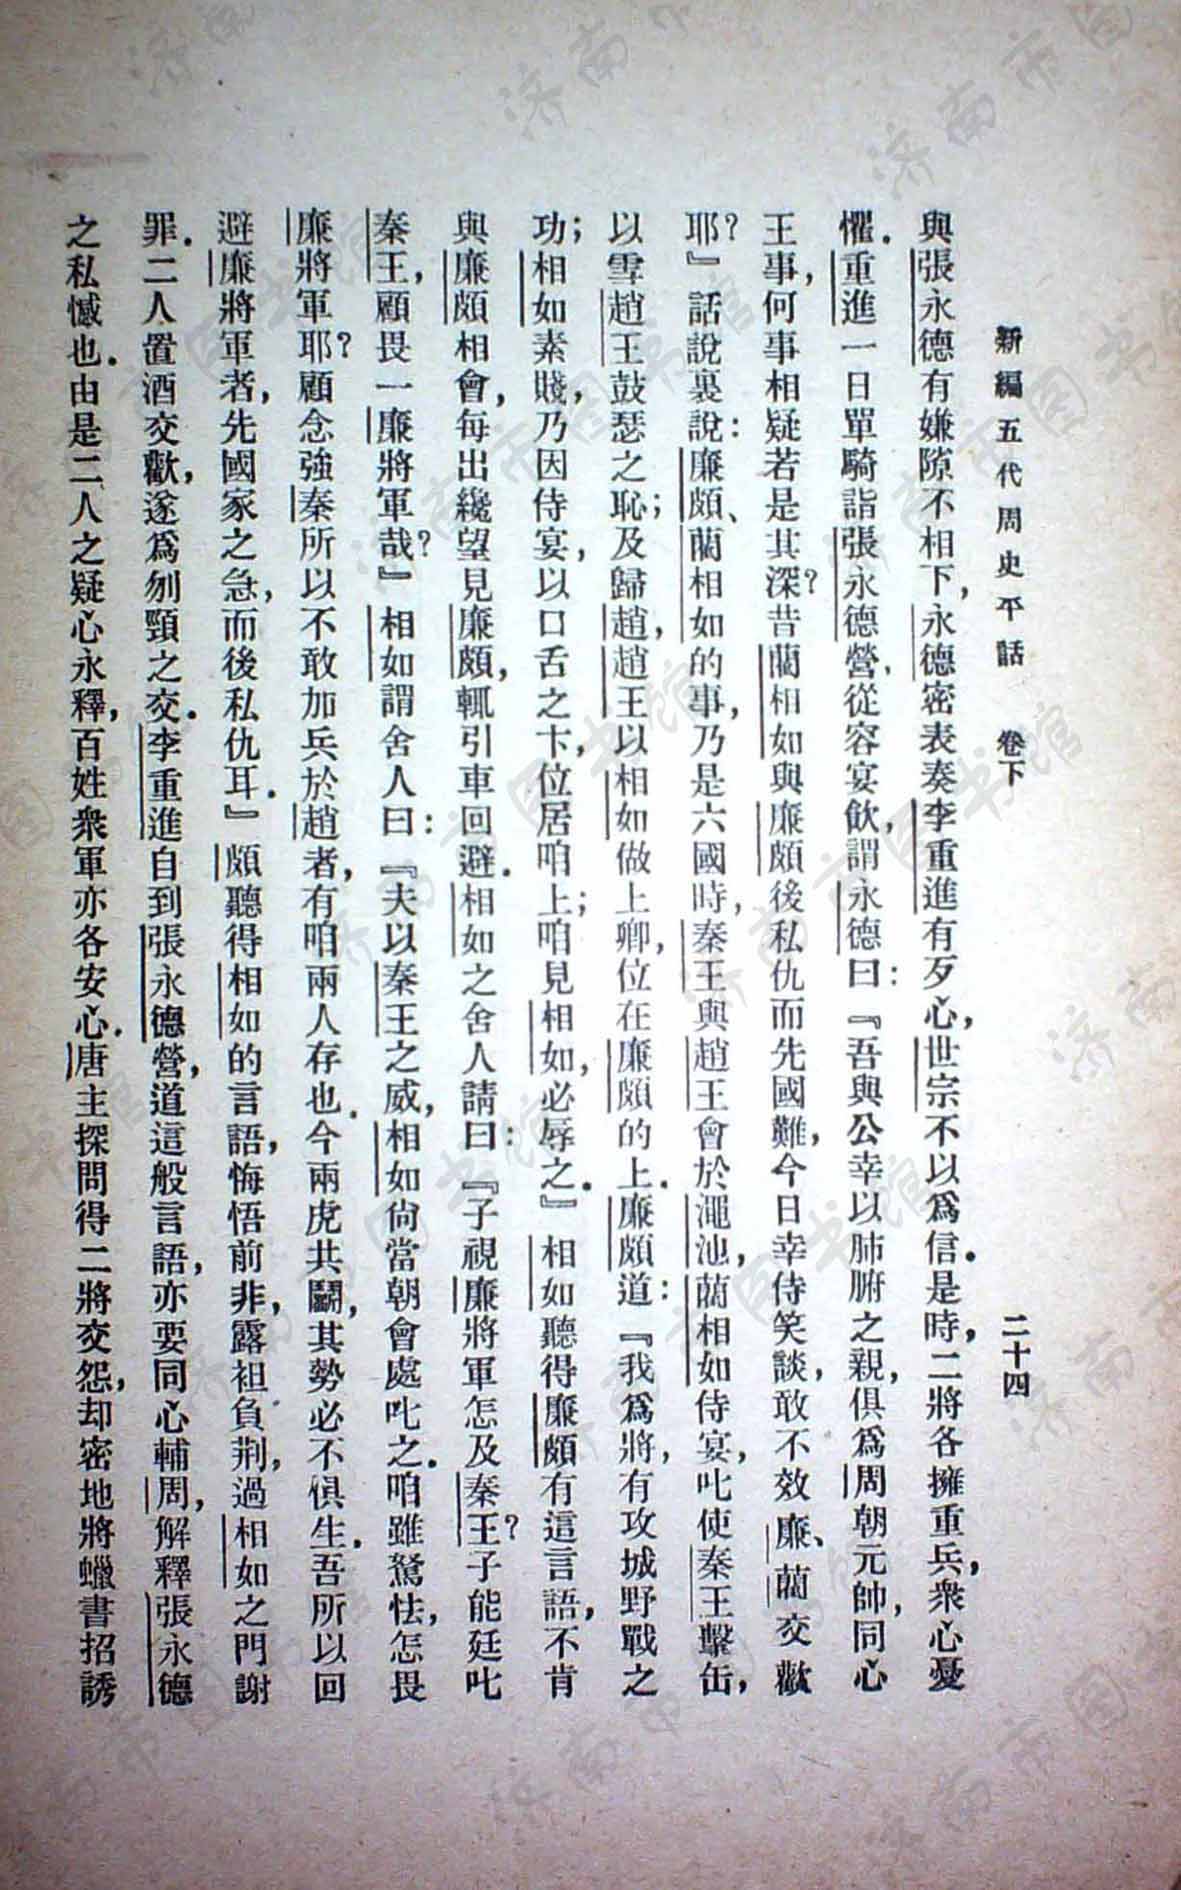 新編五代周史平話　卷下　二十四
與張永德有嫌隙不相下，永德密表奏李重進有歹心，世宗不以爲信．是時，二將各擁重兵，衆心憂
懼．重進一日單騎詣張永德營，從容宴飲，謂永德曰：『吾與公幸以肺腑之親，俱爲周朝元帥，同心
王事，何事相疑若是其深？昔藺相如與廉頗後私仇而先國難，今日幸侍笑談，敢不效廉、藺交歡
耶？』話說裏說：廉頗、藺相如的事，乃是六國時，秦王與趙王會於澠池，藺相如侍宴，叱使秦王擊缶，
以雪趙王鼓瑟之恥；及歸趙，趙王以相如做上卿，位在廉頗的上．廉頗道：『我爲將，有攻城野戰之
功；相如素賤，乃因侍宴，以口舌之卞，位居咱上；咱見相如，必辱之．』相如聽得廉頗有這言語，不肯
與廉頗相會，每出纔望見廉頗，輒引車回避．相如之舍人請曰：『子視廉將軍怎及秦王？子能廷叱
秦王，顧畏一廉將軍哉？』相如謂舍人曰：『夫以秦王之威，相如尙當朝會處叱之．咱雖駑怯，怎畏
廉將軍耶？顧念強秦所以不敢加兵於趙者，有咱兩人存也．今兩虎共鬭，其勢必不俱生．吾所以回
避廉將軍者，先國家之急，而後私仇耳．』頗聽得相如的言語，悔悟前非，露袒負荆，過相如之門謝
罪．二人置酒交歡，遂爲刎頸之交．李重進自到張永德營，道這般言語，亦要同心輔周，解釋張永德
之私憾也．由是二人之疑心永釋，百姓衆軍亦各安心．唐主探問得二將交怨，却密地將蠟書招誘
济南市图书馆